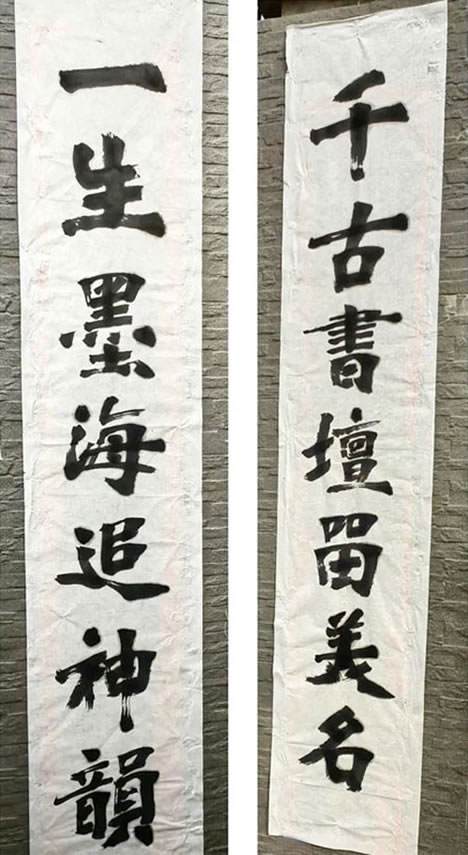 一生墨海追神韻
千古書壇畱美名